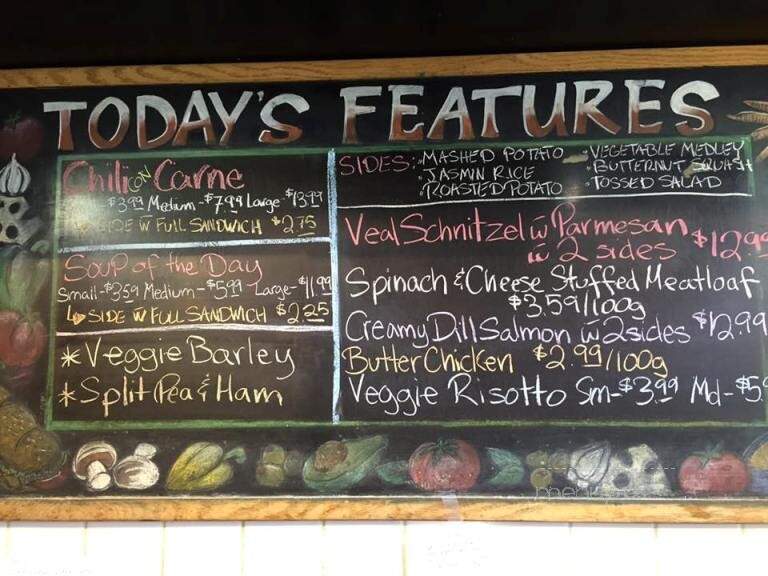 TODAY'S FEATURES
Chili con Carne
Small $3.99 Medium - $7.99 Large - $13.99
SIDE w FULL SANDWICH $2.75
Soup of the Day
Small - $3.59 Medium - $5.99 Large - $11.99
↳ SIDE w FULL SANDWICH $2.25
* Veggie Barley
* Split Pea & Ham
SIDES: • MASHED POTATO • VEGETABLE MEDLEY
• JASMIN RICE • BUTTERNUT SQUASH
• ROASTED POTATO • TOSSED SALAD
Veal Schnitzel w Parmesan
w 2 sides $12.99
Spinach & Cheese Stuffed Meatloaf
$3.59/100g
Creamy Dill Salmon w 2 sides $12.99
Butter Chicken $2.99/100g
Veggie Risotto Sm - $3.99 Md - $5.